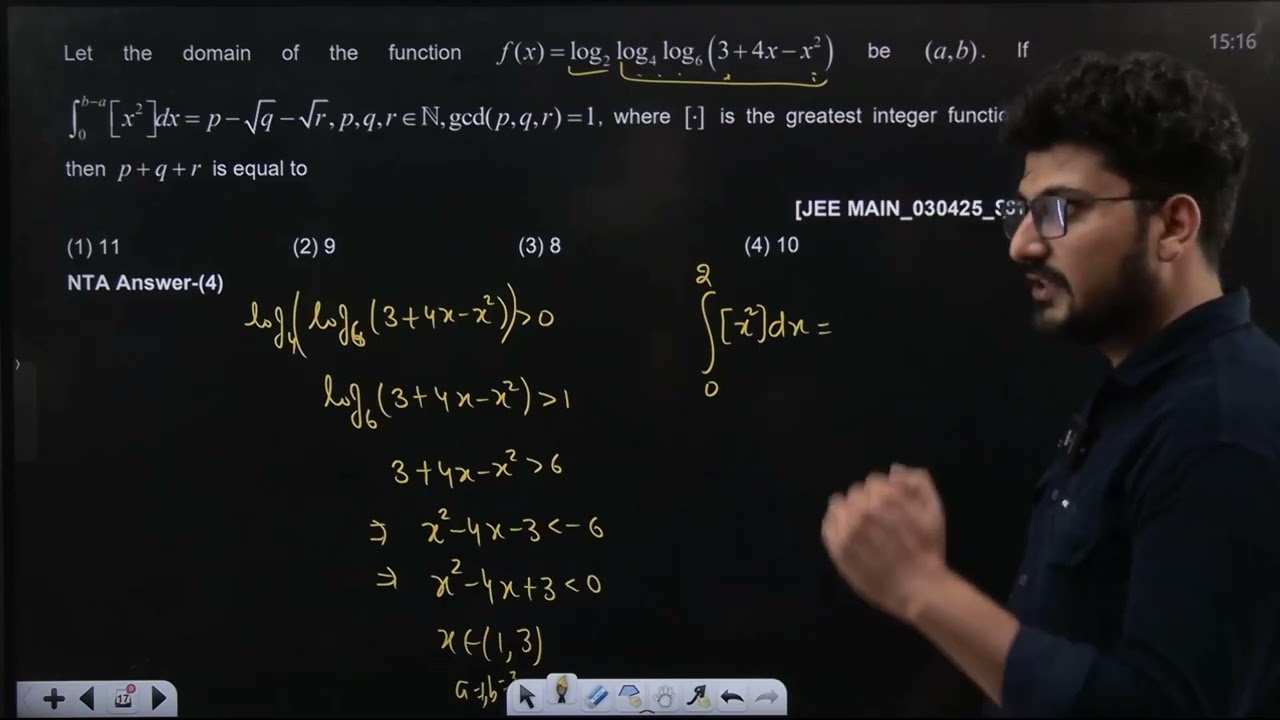 Let the domain of the function f(x) = log₂ log₄ log₆ (3 + 4x − x²) be (a, b). If
∫₀^(b−a) [x²] dx = p − √q − √r, p, q, r ∈ ℕ, gcd(p, q, r) = 1, where [·] is the greatest integer
then p + q + r is equal to
[JEE MAIN_030425_
(1) 11 (2) 9 (3) 8 (4) 10
NTA Answer-(4)
log₄(log₆(3+4x−x²))>0
log₆(3+4x−x²)>1
3+4x−x²>6
⇒ x²−4x−3<−6
⇒ x²−4x+3<0
x∈(1,3)
∫₀² [x²]dx =
15:16
17